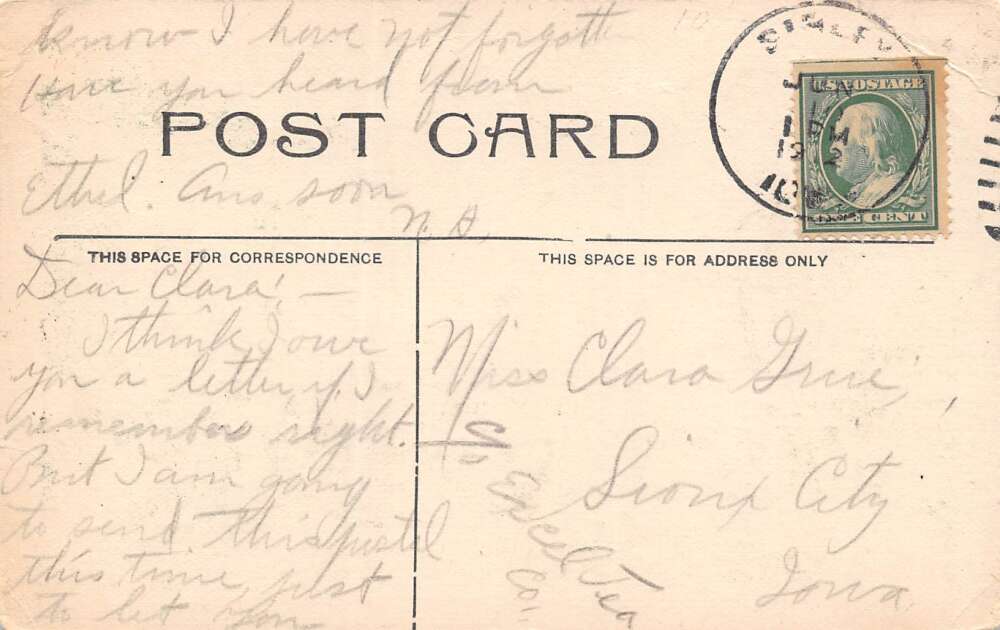 know I have not forgotten
Have you heard from
POST CARD
Ethel. Ans. soon
THIS SPACE FOR CORRESPONDENCE
THIS SPACE IS FOR ADDRESS ONLY
Dear Clara! —
I think I owe
you a letter if I
remember right.
But I am going
to send this postal
this time just
to let you
Miss Clara
Sioux City
Iowa
Excel Tea
Co.
JUN
PM
IOWA
U.S. POSTAGE
CENT